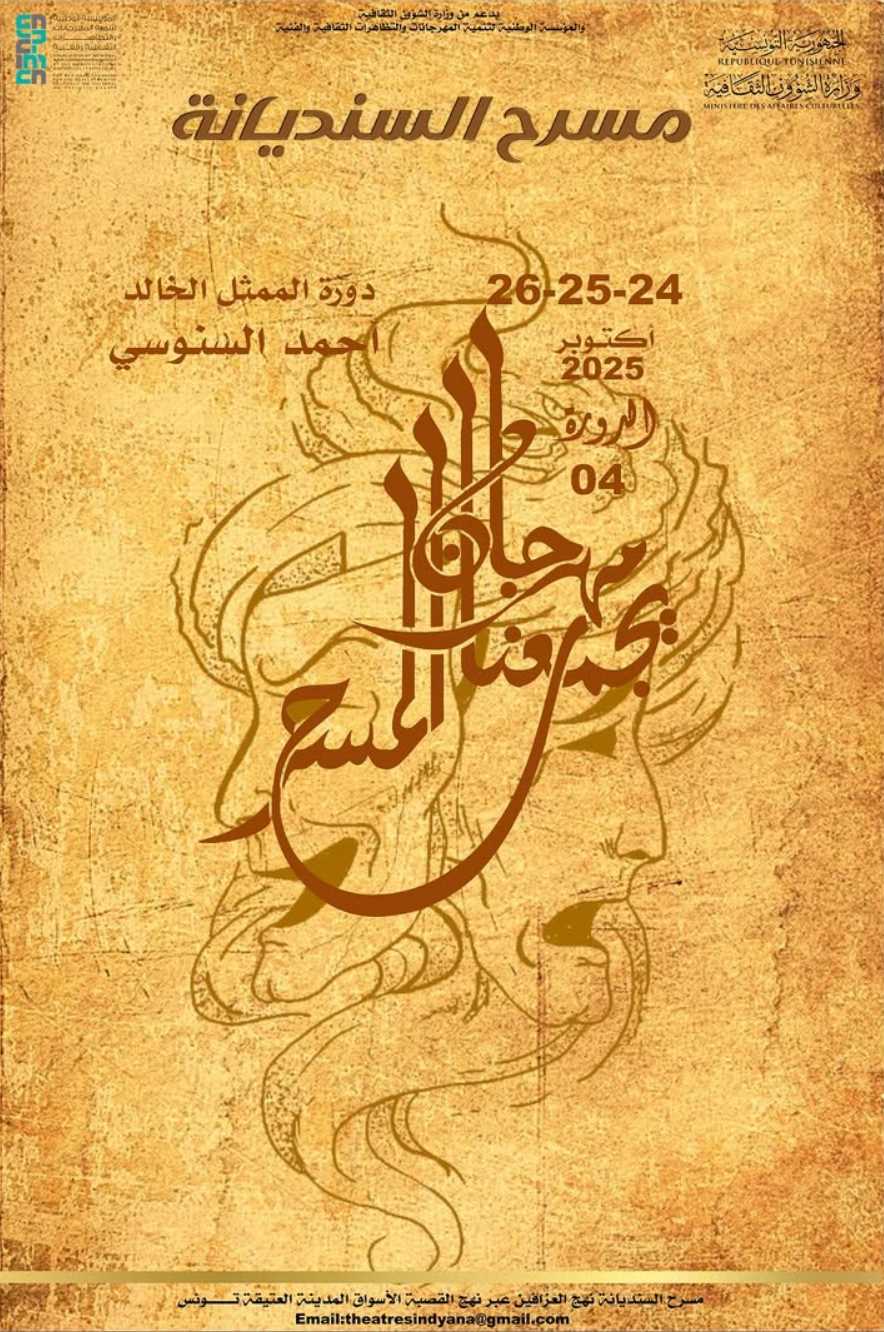 بدعم من وزارة الشؤون الثقافية
والمؤسسة الوطنية لتنمية المهرجانات والتظاهرات الثقافية والفنية
المؤسسة الوطنية
لتنمية المهرجانات
والتظاهرات
الثقافية والفنية
الجمهورية التونسية
REPUBLIQUE TUNISIENNE
وزارة الشؤون الثقافية
MINISTERE DES AFFAIRES CULTURELLES
مسرح السنديانة
26-25-24
أكتوبر
2025
الدورة
04
دورة الممثل الخالد
احمد السنوسي
مهرجان
يجمعنا
المسرح
مسرح السنديانة نهج العزافين عبر نهج القصبة الأسواق المدينة العتيقة تــونس
Email:theatresindyana@gmail.com